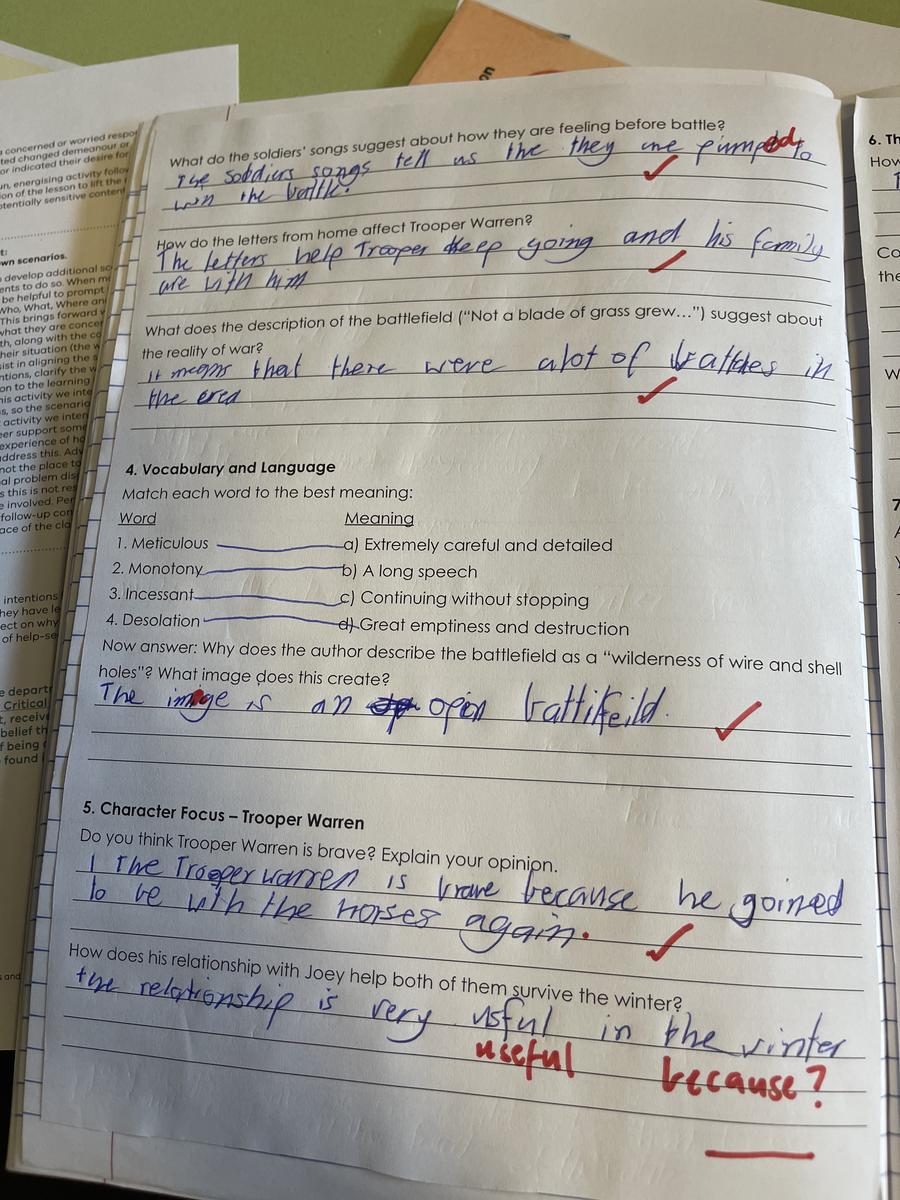 on
a concerned or worried respo
ted changed demeanour or
or indicated their desire for
un, energising activity follow
on of the lesson to lift the
otentially sensitive content
t:
wn scenarios.
develop additional sc
ents to do so. When m
be helpful to prompt
Who, What, Where an
This brings forward
what they are concer
th, along with the co
heir situation (the w
sist in aligning the s
ntions, clarify the w
on to the learning
his activity we inte
s, so the scenario
activity we inten
eer support some
experience of ho
ddress this. Adv
not the place to
al problem dis
s this is not res
e involved. Per
follow-up con
ace of the cla
intentions
hey have le
ect on why
of help-se
departr
Critical
t, receive
belief th
f being
found i
s and
What do the soldiers' songs suggest about how they are feeling before battle?
The soddiers songs tell us the they are pumped to
win the battle.
How do the letters from home affect Trooper Warren?
The letters help Trooper keep going and his family
are with him
What does the description of the battlefield ("Not a blade of grass grew…") suggest about
the reality of war?
it means that there were alot of battles in
the erea
4. Vocabulary and Language
Match each word to the best meaning:
Word Meaning
1. Meticulous a) Extremely careful and detailed
2. Monotony b) A long speech
3. Incessant c) Continuing without stopping
4. Desolation d) Great emptiness and destruction
Now answer: Why does the author describe the battlefield as a "wilderness of wire and shell
holes"? What image does this create?
The image is an opin battifeild.
5. Character Focus – Trooper Warren
Do you think Trooper Warren is brave? Explain your opinion.
I The Trooper warren is brave because he goined
to be with the horses again.
How does his relationship with Joey help both of them survive the winter?
the relationship is very usful in the winter
useful because?
6. Th
How
Co
the
W
7
A
y